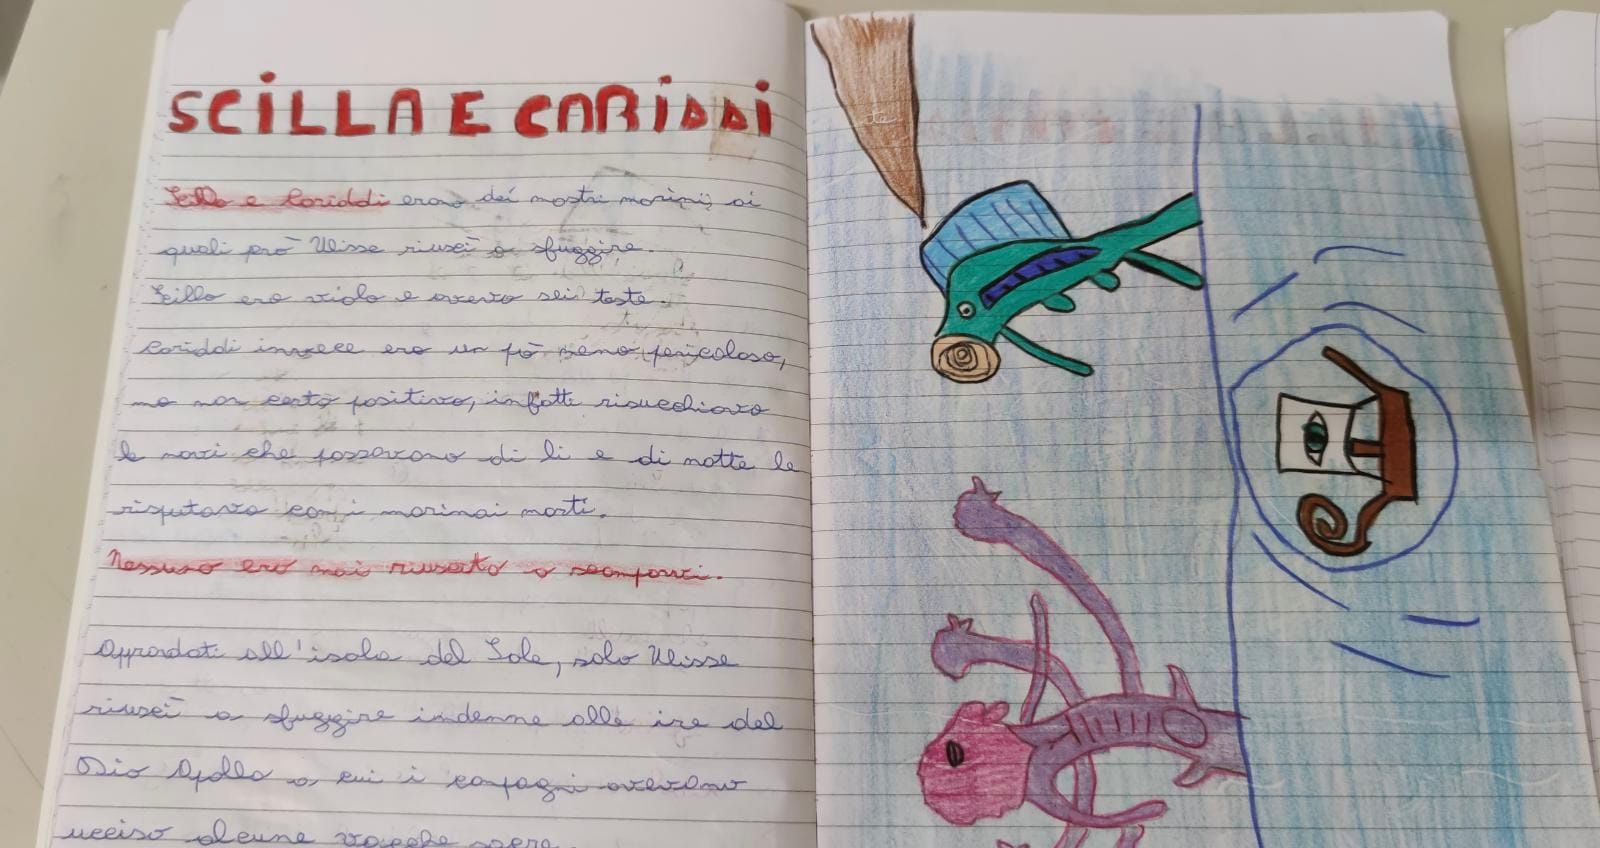 SCILLA E CARIDDI
Scilla e Cariddi erano dei mostri marini, ai
quali però Ulisse riuscì a sfuggire.
Scilla era viola e aveva sei teste.
Cariddi invece era un pò meno pericoloso,
ma non certo positivo, infatti risucchiava
le navi che passavano di lì e di notte le
risputava con i marinai morti.
Nessuno era mai riuscito a scamparci.
Approdati all'isola del Sole, solo Ulisse
riuscì a sfuggire indenne alle ire del
Dio Apollo a cui i compagni avevano
ucciso alcune vacche sacre.
te